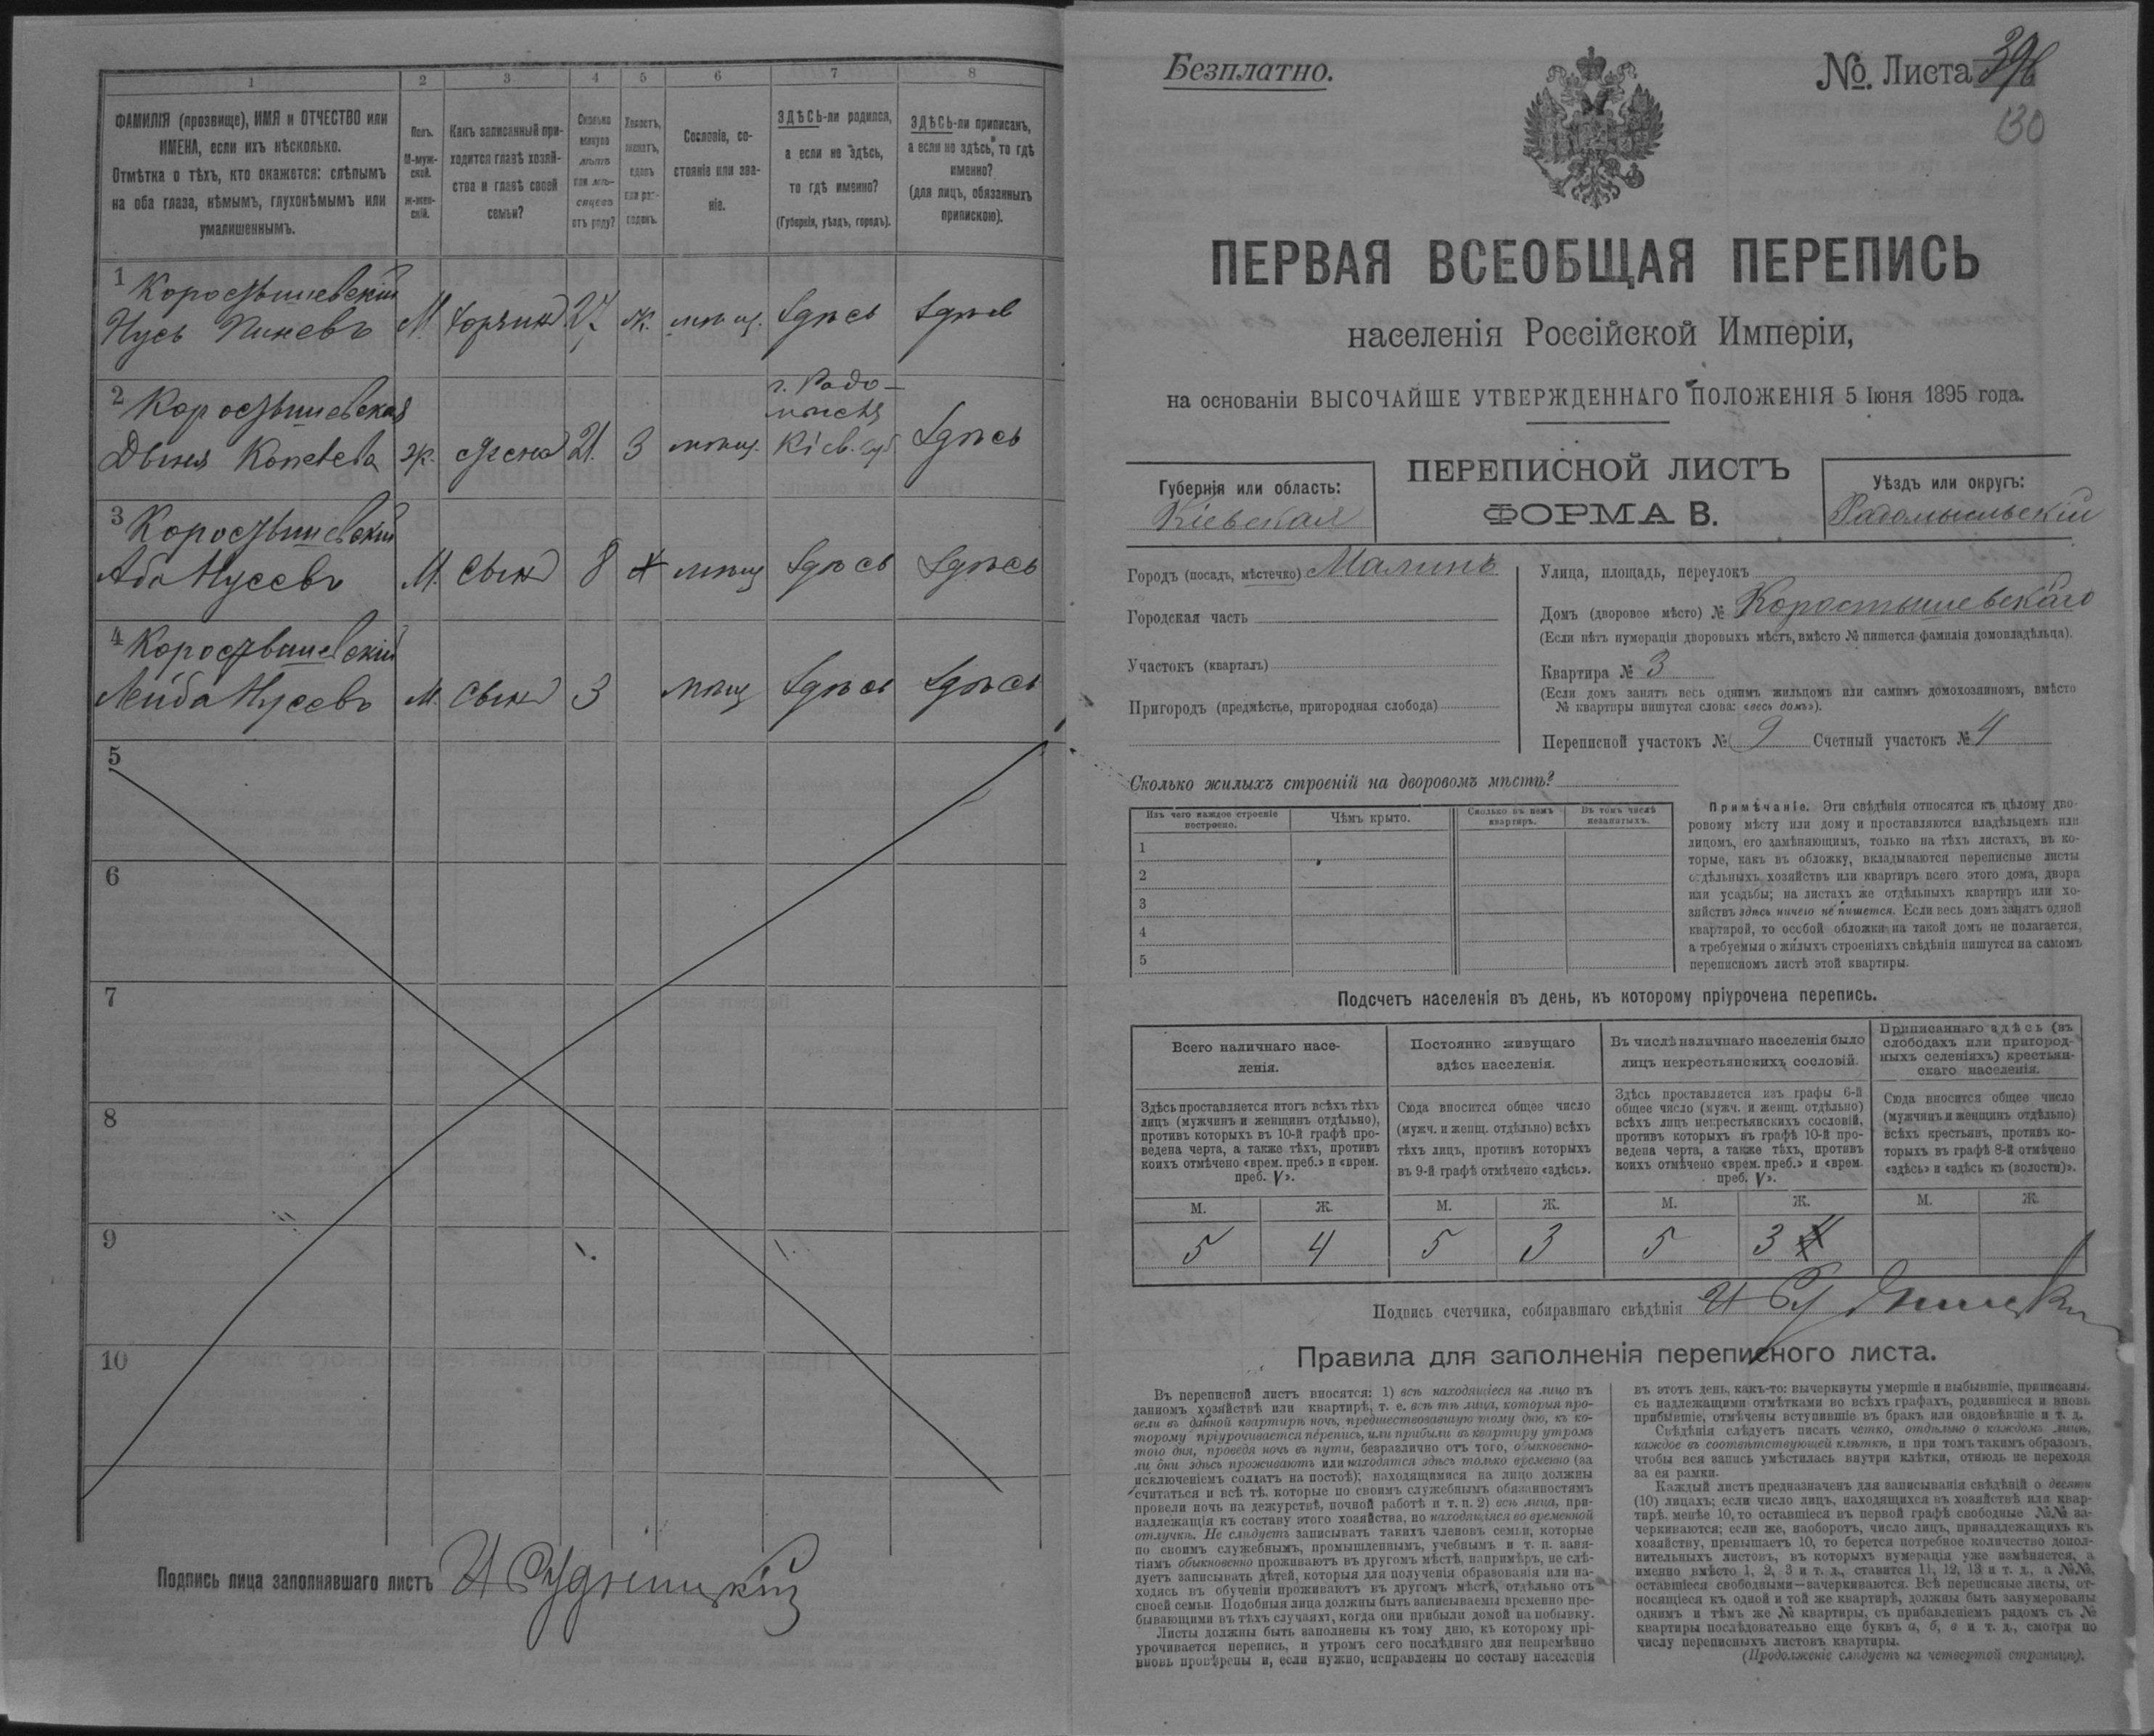 1
2
3
4
5
6
7
8
ФАМИЛІЯ (прозвище), ИМЯ и ОТЧЕСТВО или
ИМЕНА, если ихъ нѣсколько.
Отмѣтка о тѣхъ, кто окажется: слѣпымъ
на оба глаза, нѣмымъ, глухонѣмымъ или
умалишеннымъ.
Полъ.
М-муж-
ской.
Ж-жен-
скій.
Какъ записанный при-
ходится главѣ хозяй-
ства и главѣ своей
семьи?
Сколько
минуло
лѣтъ
или мѣ-
сяцевъ
отъ роду?
Холостъ,
женатъ,
вдовъ
или раз-
веденъ.
Сословіе, со-
стояніе или зва-
ніе.
ЗДѢСЬ-ли родился,
а если не здѣсь,
то гдѣ именно?
(Губернія, уѣздъ, городъ).
ЗДѢСЬ-ли приписанъ,
а если не здѣсь, то гдѣ
именно?
(для лицъ, обязанныхъ
припискою).
1 Коростышевскій
Нусь Пинсвъ М. Хозяинъ 27 ж. мѣщ. Здѣсь Здѣсь
2 Коростышевская
ж. жена 21. 3 мѣщ. г. Радо-
мысль
Кіев. губ Здѣсь
3 Коростышевскій
Аба Нусевъ М. Сынъ 8 мѣщ Здѣсь Здѣсь
4 Коростышевскій
Лейба Нусевъ М. Сынъ 3 мѣщ Здѣсь Здѣсь
5
6
7
8
9
10
Подпись лица заполнявшаго листъ
Безплатно.
№. Листа
130
ПЕРВАЯ ВСЕОБЩАЯ ПЕРЕПИСЬ
населенія Россійской Имперіи,
на основаніи ВЫСОЧАЙШЕ УТВЕРЖДЕННАГО ПОЛОЖЕНІЯ 5 Іюня 1895 года.
Губернія или область:
Кіевская
ПЕРЕПИСНОЙ ЛИСТЪ
ФОРМА В.
Уѣздъ или округъ:
Радомысльскій
Городъ (посадъ, мѣстечко) Малинъ
Городская часть
Участокъ (кварталъ)
Пригородъ (предмѣстье, пригородная слобода)
Улица, площадь, переулокъ
Домъ (дворовое мѣсто) № Коростышевскаго
(Если нѣтъ нумераціи дворовыхъ мѣстъ, вмѣсто № пишется фамилія домовладѣльца).
Квартира № 3
(Если домъ занятъ весь однимъ жильцомъ или самимъ домохозяиномъ, вмѣсто
№ квартиры пишутся слова: «весь домъ»).
Переписной участокъ № 9 Счетный участокъ № 4
Сколько жилыхъ строеній на дворовомъ мѣстѣ?
Изъ чего каждое строеніе
построено.
Чѣмъ крыто.
Сколько въ немъ
квартиръ.
Въ томъ числѣ
незанятыхъ.
1
2
3
4
5
Примѣчаніе. Эти свѣдѣнія относятся къ цѣлому дво-
ровому мѣсту или дому и проставляются владѣльцемъ или
лицомъ, его замѣняющимъ, только на тѣхъ листахъ, въ ко-
торые, какъ въ обложку, вкладываются переписные листы
отдѣльныхъ хозяйствъ или квартиръ всего этого дома, двора
или усадьбы; на листахъ же отдѣльныхъ квартиръ или хо-
зяйствъ здѣсь ничего не пишется. Если весь домъ занятъ одной
квартирой, то особой обложки на такой домъ не полагается,
а требуемыя о жилыхъ строеніяхъ свѣдѣнія пишутся на самомъ
переписномъ листѣ этой квартиры.
Подсчетъ населенія въ день, къ которому пріурочена перепись.
Всего наличнаго насе-
ленія.
Постоянно живущаго
здѣсь населенія.
Въ числѣ наличнаго населенія было
лицъ некрестьянскихъ сословій.
Приписаннаго здѣсь (въ
слободахъ или пригород-
ныхъ селеніяхъ) крестьян-
скаго населенія.
Здѣсь проставляется итогъ всѣхъ тѣхъ
лицъ (мужчинъ и женщинъ отдѣльно),
противъ которыхъ въ 10-й графѣ про-
ведена черта, а также тѣхъ, противъ
коихъ отмѣчено «врем. преб.» и «врем.
преб. V».
Сюда вносится общее число
(мужч. и женщ. отдѣльно) всѣхъ
тѣхъ лицъ, противъ которыхъ
въ 9-й графѣ отмѣчено «здѣсь».
Здѣсь проставляется изъ графы 6-й
общее число (мужч. и женщ. отдѣльно)
всѣхъ лицъ некрестьянскихъ сословій,
противъ которыхъ въ графѣ 10-й про-
ведена черта, а также тѣхъ, противъ
коихъ отмѣчено «врем. преб.» и «врем.
преб. V».
Сюда вносится общее число
(мужчинъ и женщинъ отдѣльно)
всѣхъ крестьянъ, противъ ко-
торыхъ въ графѣ 8-й отмѣчено
«здѣсь» и «здѣсь къ (волости)».
М. Ж. М. Ж. М. Ж. М. Ж.
5 4 5 3 5 3 4
Подпись счетчика, собиравшаго свѣдѣнія
Правила для заполненія переписного листа.
Въ переписной листъ вносятся: 1) всѣ находящіеся на лицо въ
данномъ хозяйствѣ или квартирѣ, т. е. всѣ тѣ лица, которыя про-
вели въ данной квартирѣ ночь, предшествовавшую тому дню, къ ко-
торому пріурочивается перепись, или прибыли въ квартиру утромъ
того дня, проведя ночь въ пути, безразлично отъ того, обыкновенно-
ли они здѣсь проживаютъ или находятся здѣсь только временно (за
исключеніемъ солдатъ на постоѣ); находящимися на лицо должны
считаться и всѣ тѣ, которые по своимъ служебнымъ обязанностямъ
провели ночь на дежурствѣ, ночной работѣ и т. п. 2) всѣ лица, при-
надлежащія къ составу этого хозяйства, но находящіяся во временной
отлучкѣ. Не слѣдуетъ записывать такихъ членовъ семьи, которые
по своимъ служебнымъ, промышленнымъ, учебнымъ и т. п. заня-
тіямъ обыкновенно проживаютъ въ другомъ мѣстѣ, напримѣръ, не слѣ-
дуетъ записывать дѣтей, которыя для полученія образованія или на-
ходясь въ обученіи проживаютъ въ другомъ мѣстѣ, отдѣльно отъ
своей семьи. Подобныя лица должны быть записываемы временно пре-
бывающими въ тѣхъ случаяхъ, когда они прибыли домой на побывку.
Листы должны быть заполнены къ тому дню, къ которому прі-
урочивается перепись, и утромъ сего послѣдняго дня непремѣнно
вновь провѣрены и, если нужно, исправлены по составу населенія
въ этотъ день, какъ-то: вычеркнуты умершіе и выбывшіе, приписаны,
съ надлежащими отмѣтками во всѣхъ графахъ, родившіеся и вновь
прибывшіе, отмѣчены вступившіе въ бракъ или овдовѣвшіе и т. д.
Свѣдѣнія слѣдуетъ писать четко, отдѣльно о каждомъ лицѣ,
каждое въ соотвѣтствующей клѣткѣ, и при томъ такимъ образомъ,
чтобы вся запись умѣстилась внутри клѣтки, отнюдь не переходя
за ея рамки.
Каждый листъ предназначенъ для записыванія свѣдѣній о десяти
(10) лицахъ; если число лицъ, находящихся въ хозяйствѣ или квар-
тирѣ, менѣе 10, то оставшіеся въ первой графѣ свободные №№ за-
черкиваются; если же, наоборотъ, число лицъ, принадлежащихъ къ
хозяйству, превышаетъ 10, то берется потребное количество допол-
нительныхъ листовъ, въ которыхъ нумерація уже измѣняется, а
именно вмѣсто 1, 2, 3 и т. д., ставится 11, 12, 13 и т. д., а №№,
оставшіеся свободными—зачеркиваются. Всѣ переписные листы, от-
носящіеся къ одной и той же квартирѣ, должны быть занумерованы
однимъ и тѣмъ же № квартиры, съ прибавленіемъ рядомъ съ №
квартиры послѣдовательно еще буквъ а, б, в и т. д., смотря по
числу переписныхъ листовъ квартиры.
(Продолженіе слѣдуетъ на четвертой страницѣ).